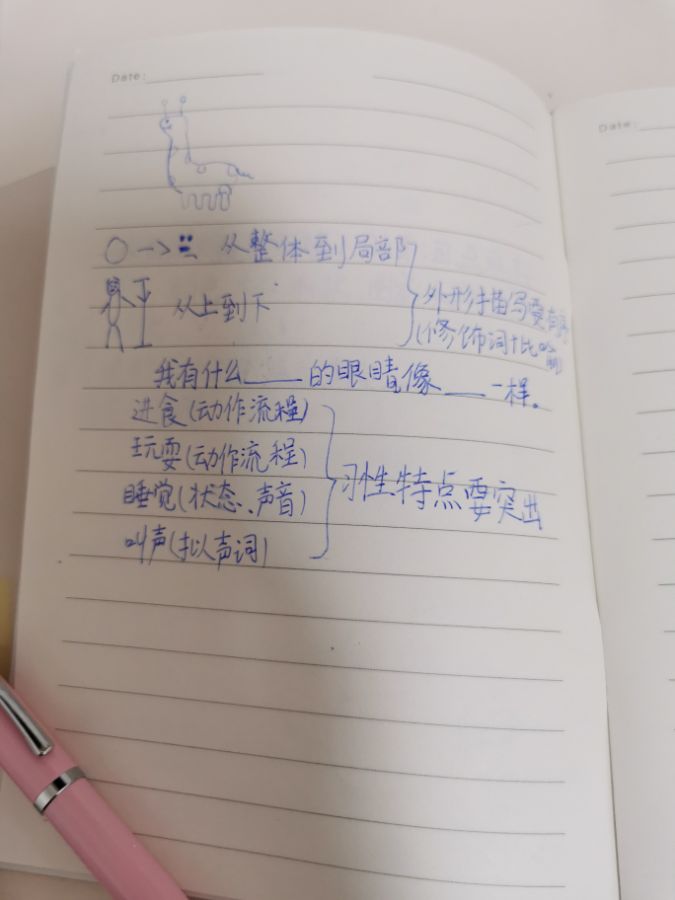 Date:
Date:
从整体到局部
从上到下
外形描写要有
(修饰词+比喻)
我有什么____的眼睛像____一样。
进食(动作流程)
玩耍(动作流程)
睡觉(状态、声音)
叫声(拟声词)
习性特点要突出